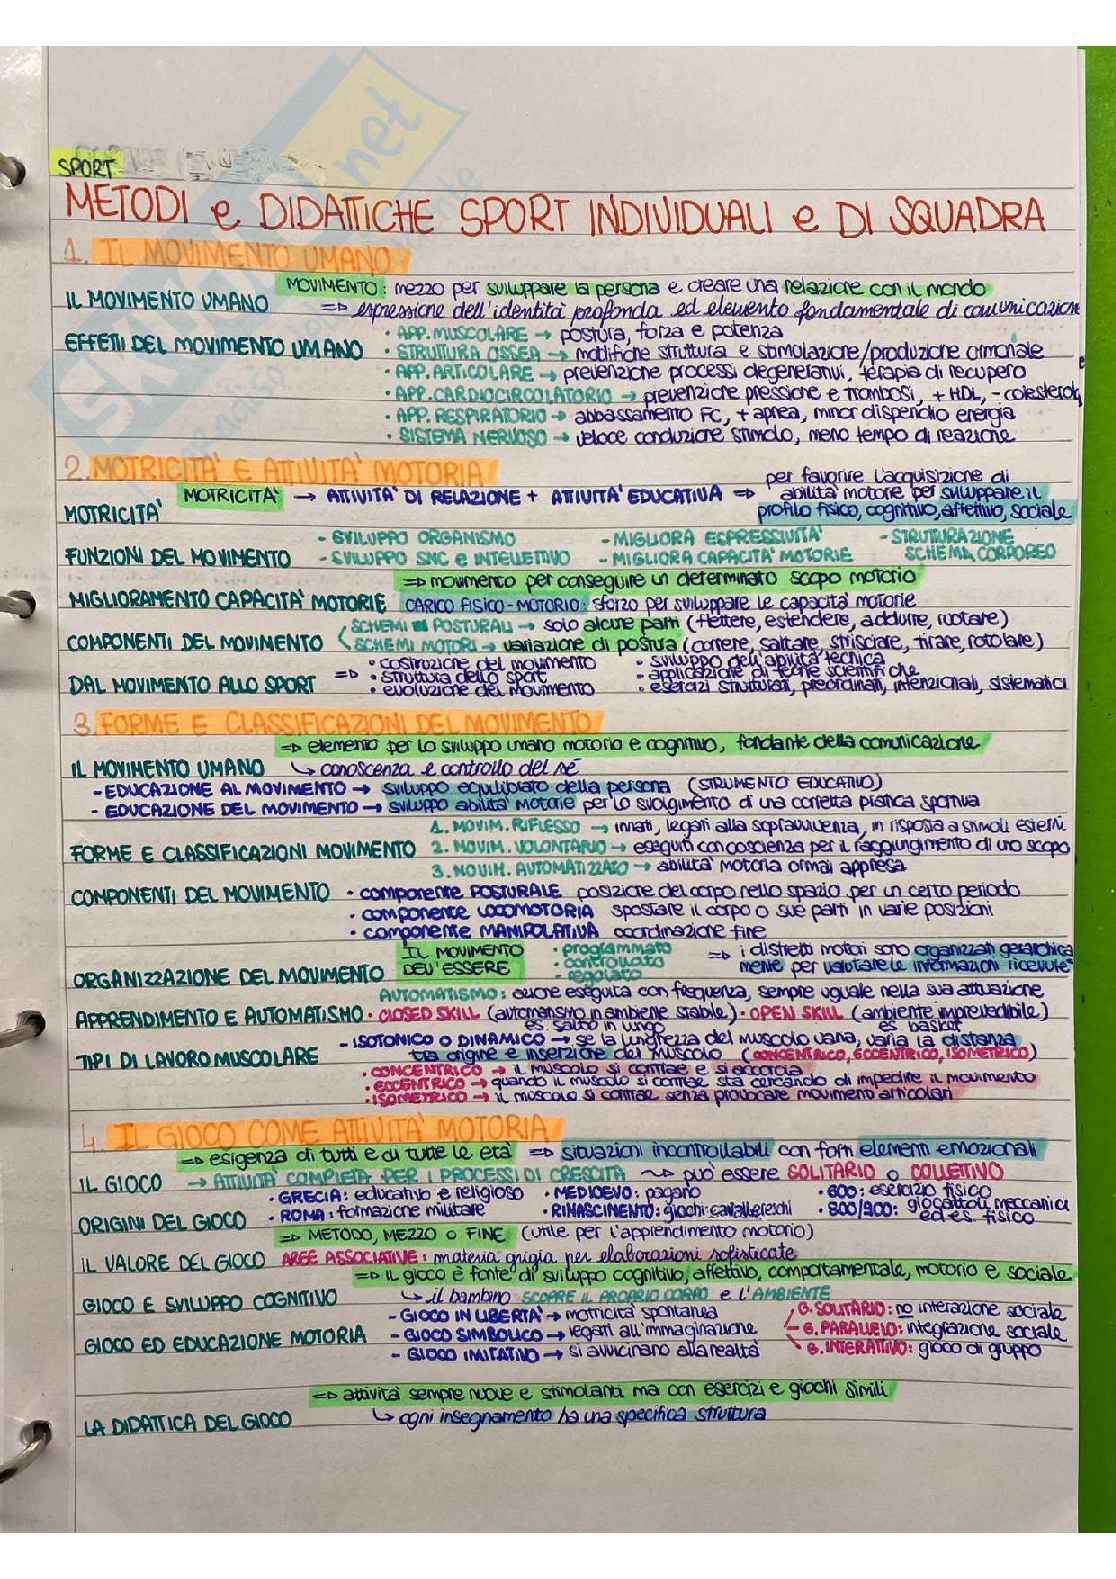 SPORT
METODI e DIDATTICHE SPORT INDIVIDUALI e DI SQUADRA
1. IL MOVIMENTO UMANO
MOVIMENTO: mezzo per sviluppare la persona e creare una relazione con il mondo
IL MOVIMENTO UMANO => espressione dell'identità profonda ed elemento fondamentale di comunicazione
EFFETTI DEL MOVIMENTO UMANO • APP. MUSCOLARE → postura, forza e potenza
• STRUTTURA OSSEA → modifiche struttura e stimolazione/produzione ormonale
• APP. ARTICOLARE → prevenzione processi degenerativi, terapia di recupero
• APP. CARDIOCIRCOLATORIO → prevenzione pressione e trombosi, + HDL, - colesterolo
• APP. RESPIRATORIO → abbassamento FC, + apnea, minor dispendio energia
• SISTEMA NERVOSO → veloce conduzione stimolo, meno tempo di reazione
2. MOTRICITA' E ATTIVITA' MOTORIA
MOTRICITA' MOTRICITA' → ATTIVITA' DI RELAZIONE + ATTIVITA' EDUCATIVA => per favorire l'acquisizione di
abilità motorie per sviluppare il
profilo fisico, cognitivo, affettivo, sociale
FUNZIONI DEL MOVIMENTO - SVILUPPO ORGANISMO - MIGLIORA ESPRESSIVITA' - STRUTTURAZIONE
- SVILUPPO SNC e INTELLETTIVO - MIGLIORA CAPACITA' MOTORIE SCHEMA CORPOREO
=> movimento per conseguire un determinato scopo motorio
MIGLIORAMENTO CAPACITA' MOTORIE CARICO FISICO-MOTORIO: sforzo per sviluppare le capacità motorie
COMPONENTI DEL MOVIMENTO SCHEMI POSTURALI → solo alcune parti (flettere, estendere, addurre, ruotare)
SCHEMI MOTORI → variazione di postura (correre, saltare, strisciare, tirare, rotolare)
DAL MOVIMENTO ALLO SPORT => • costruzione del movimento • sviluppo dell'abilità tecnica
• struttura dello sport • applicazione di teorie scientifiche
• evoluzione del movimento • esercizi strutturati, preordinati, intenzionali, sistematici
3. FORME E CLASSIFICAZIONI DEL MOVIMENTO
=> elemento per lo sviluppo umano motorio e cognitivo, fondante della comunicazione
IL MOVIMENTO UMANO ↳ conoscenza e controllo del sé
- EDUCAZIONE AL MOVIMENTO → sviluppo equilibrato della persona (STRUMENTO EDUCATIVO)
- EDUCAZIONE DEL MOVIMENTO → sviluppo abilità motorie per lo svolgimento di una corretta pratica sportiva
1. MOVIM. RIFLESSO → innati, legati alla sopravvivenza, in risposta a stimoli esterni
FORME E CLASSIFICAZIONI MOVIMENTO 2. MOVIM. VOLONTARIO → eseguiti con coscienza per il raggiungimento di uno scopo
3. MOVIM. AUTOMATIZZATO → abilità motoria ormai appresa
COMPONENTI DEL MOVIMENTO • componente POSTURALE posizione del corpo nello spazio per un certo periodo
• componente LOCOMOTORIA spostare il corpo o sue parti in varie posizioni
• componente MANIPOLATIVA coordinazione fine
ORGANIZZAZIONE DEL MOVIMENTO IL MOVIMENTO • programmato => i distretti motori sono organizzati gerarchica
DEV'ESSERE • controllato mente per valutare le informazioni ricevute
• regolato
AUTOMATISMO: azione eseguita con frequenza, sempre uguale nella sua attuazione
APPRENDIMENTO E AUTOMATISMO • CLOSED SKILL (automatismo in ambiente stabile) • OPEN SKILL (ambiente imprevedibile)
es. salto in lungo es. basket
TIPI DI LAVORO MUSCOLARE - ISOTONICO O DINAMICO → se la lunghezza del muscolo varia, varia la distanza
tra origine e inserzione del muscolo (CONCENTRICO, ECCENTRICO, ISOMETRICO)
• CONCENTRICO → il muscolo si contrae e si accorcia
• ECCENTRICO → quando il muscolo si contrae sta cercando di impedire il movimento
• ISOMETRICO → il muscolo si contrae senza provocare movimenti articolari
4. IL GIOCO COME ATTIVITA' MOTORIA
=> esigenza di tutti e di tutte le età => situazioni incontrollabili con forti elementi emozionali
IL GIOCO → ATTIVITÀ COMPLETA PER I PROCESSI DI CRESCITA ~> può essere SOLITARIO o COLLETTIVO
ORIGINI DEL GIOCO • GRECIA: educativo e religioso • MEDIOEVO: pagano • 600: esercizio fisico
• ROMA: formazione militare • RINASCIMENTO: giochi cavallereschi • 800/900: giocattoli meccanica
ed es. fisico
=> METODO, MEZZO O FINE (utile per l'apprendimento motorio)
IL VALORE DEL GIOCO AREE ASSOCIATIVE: materia grigia per elaborazioni sofisticate
=> il gioco è fonte di sviluppo cognitivo, affettivo, comportamentale, motorio e sociale
GIOCO E SVILUPPO COGNITIVO ↳ il bambino SCOPRE IL PROPRIO CORPO e l'AMBIENTE
GIOCO ED EDUCAZIONE MOTORIA - GIOCO IN LIBERTA' → motricità spontanea G. SOLITARIO: no interazione sociale
- GIOCO SIMBOLICO → legati all'immaginazione G. PARALLELO: integrazione sociale
- GIOCO IMITATIVO → si avvicinano alla realtà G. INTERATTIVO: gioco di gruppo
=> attività sempre nuove e stimolanti ma con esercizi e giochi simili
LA DIDATTICA DEL GIOCO ↳ ogni insegnamento ha una specifica struttura